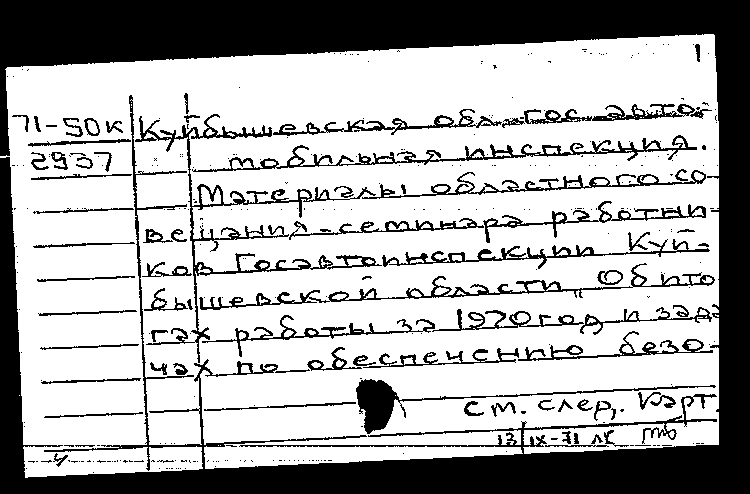 1
71-50к Куйбышевская обл. гос. авто-
2937 мобильная инспекция.
Материалы областного со-
вещания-семинара работни-
ков Госавтоинспекции Куй-
бышевской области „Об ито
гах работы за 1970 год и зада
чах по обеспечению безо-
см. след. карт.
13/IX-71